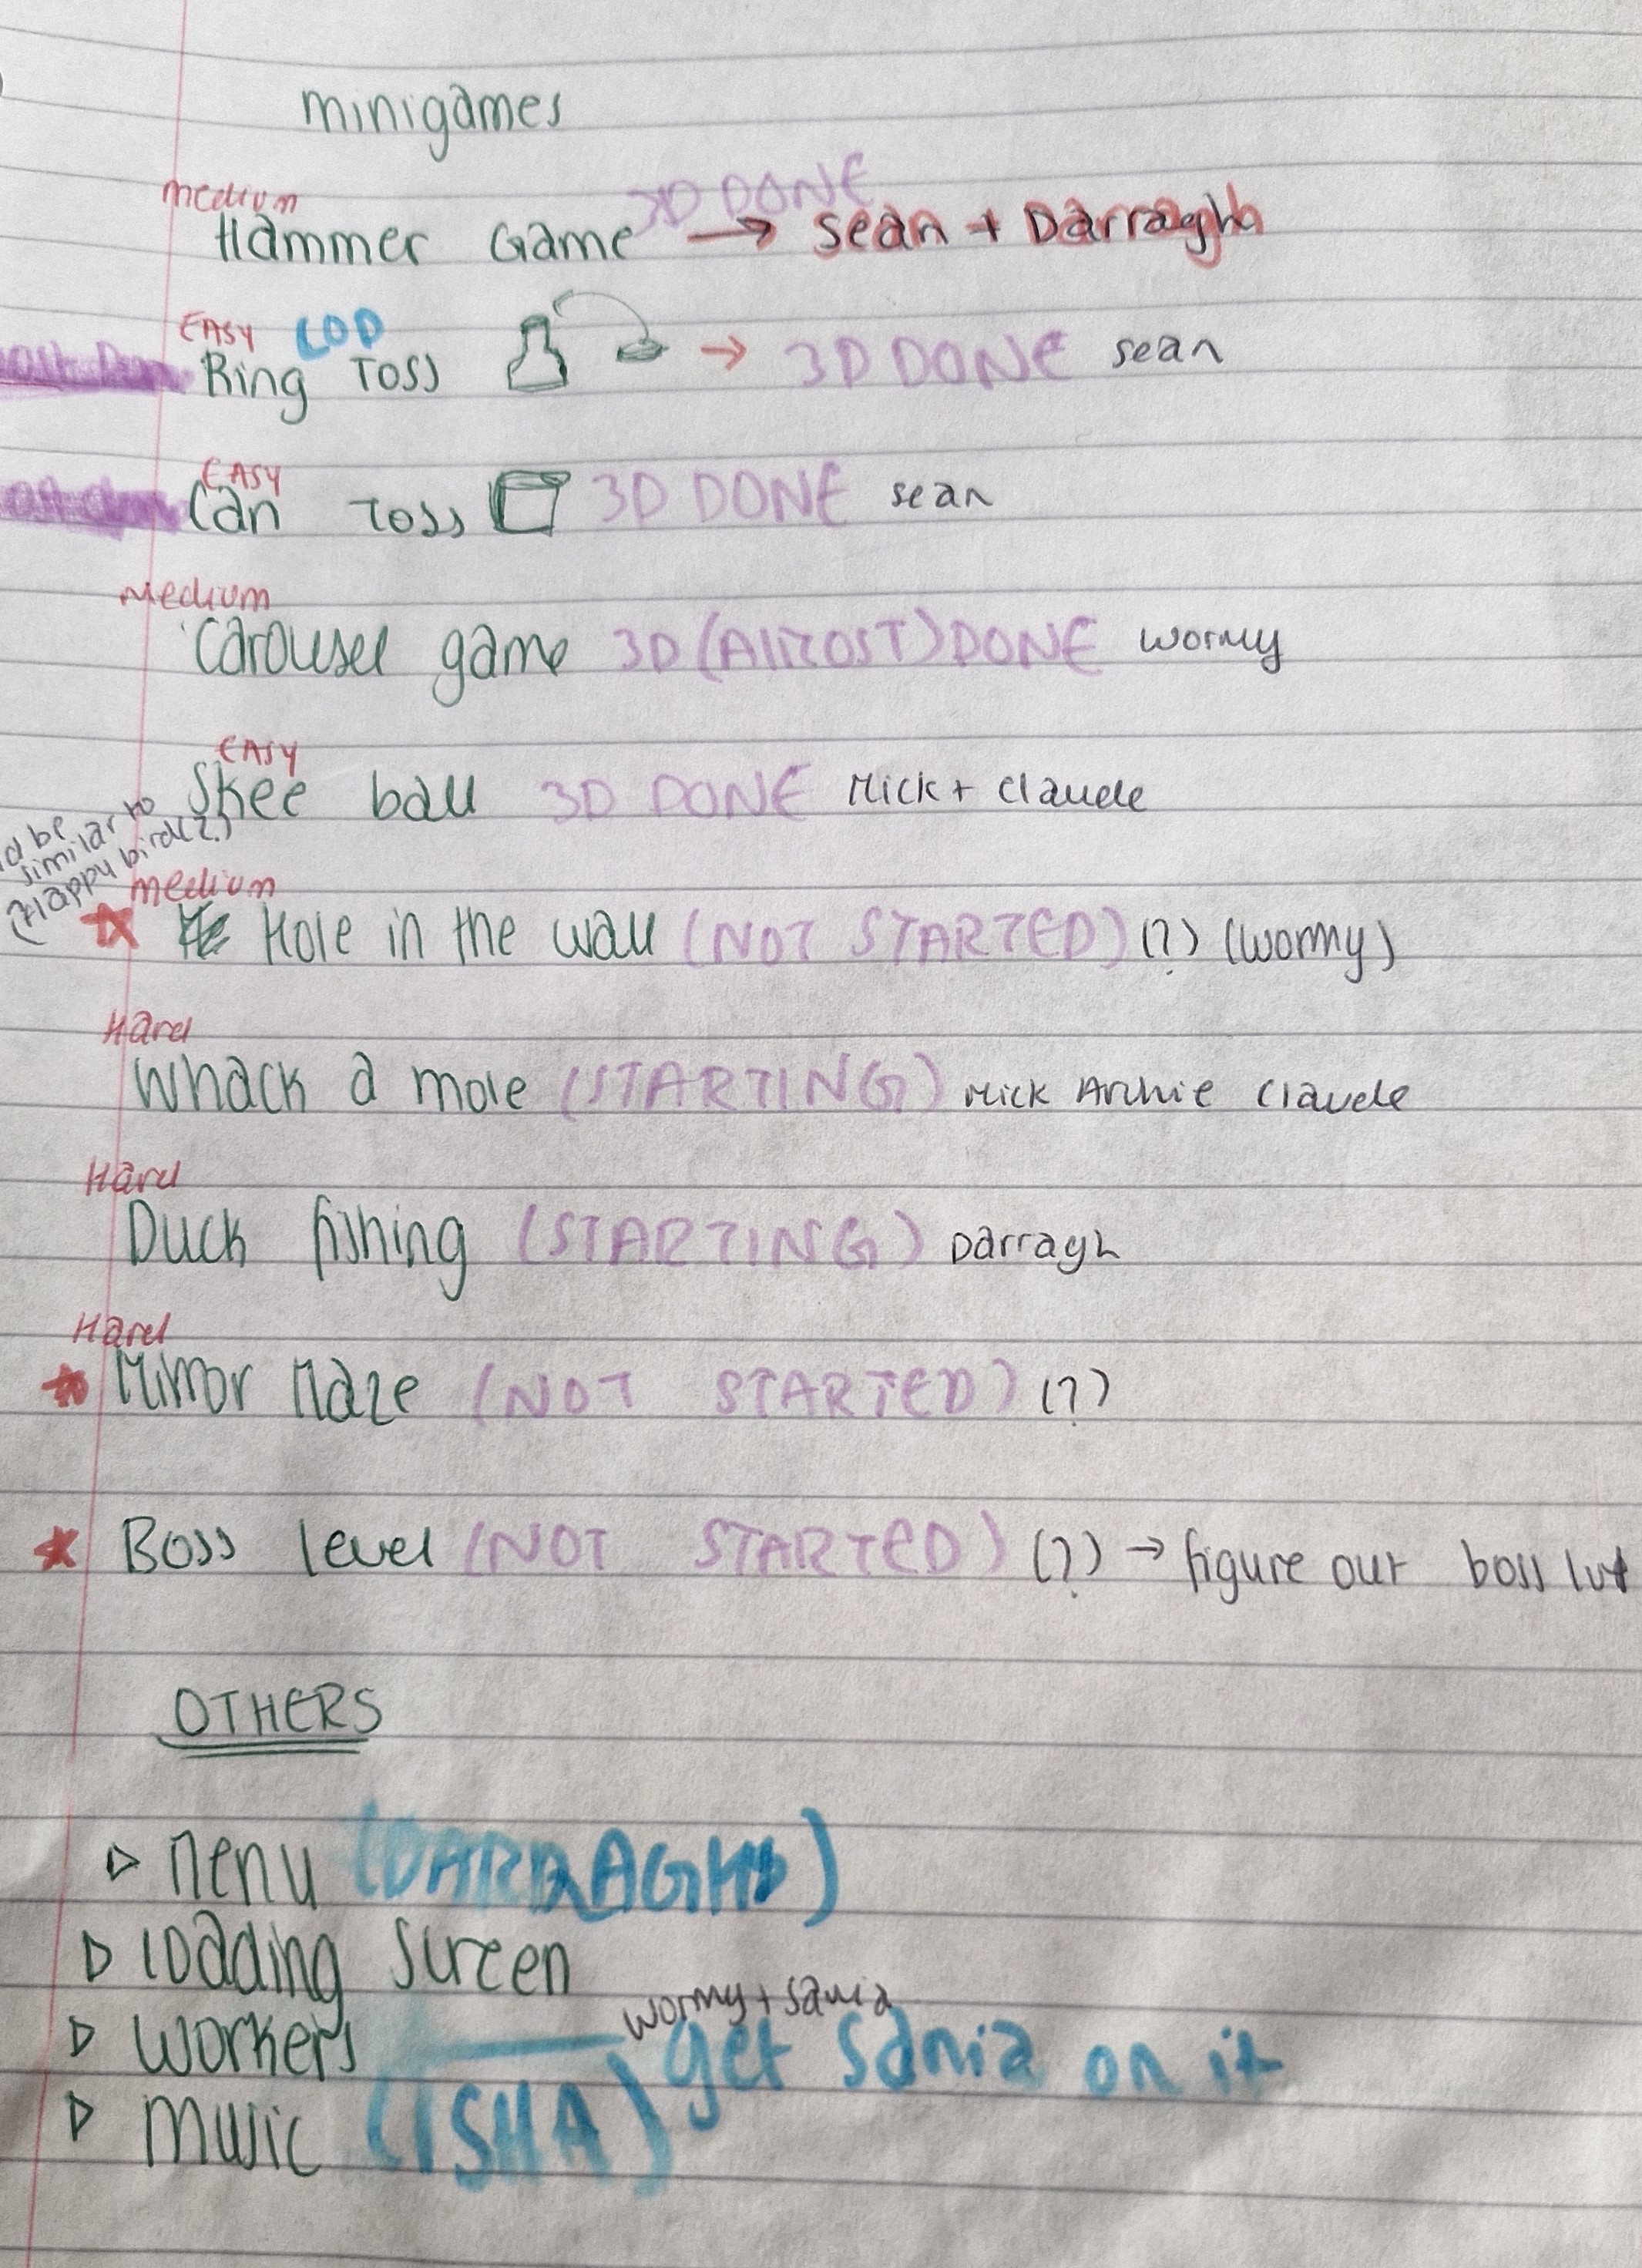 minigames
medium 3D DONE
Hammer Game → Sean + Darragh
EASY LOD
Ring Toss → 3D DONE sean
EASY
Can Toss 3D DONE sean
Medium
Carousel game 3D (AlmOST) DONE wormy
EASY
Skee ball 3D DONE Mick + Claude
be
similar to
(flappy bird(?)
medium
Hole in the wall (NOT STARTED) (?) (wormy)
Hard
Whack a mole (STARTING) Mick Archie Claude
Hard
Duck fishing (STARTING) Darragh
Hard
Mirror Maze (NOT STARTED) (?)
Boss level (NOT STARTED) (?) → figure out boss
OTHERS
Menu (DARRAGH)
loading screen
wormy + sania
workers get Sania on it
Music (ISHA)